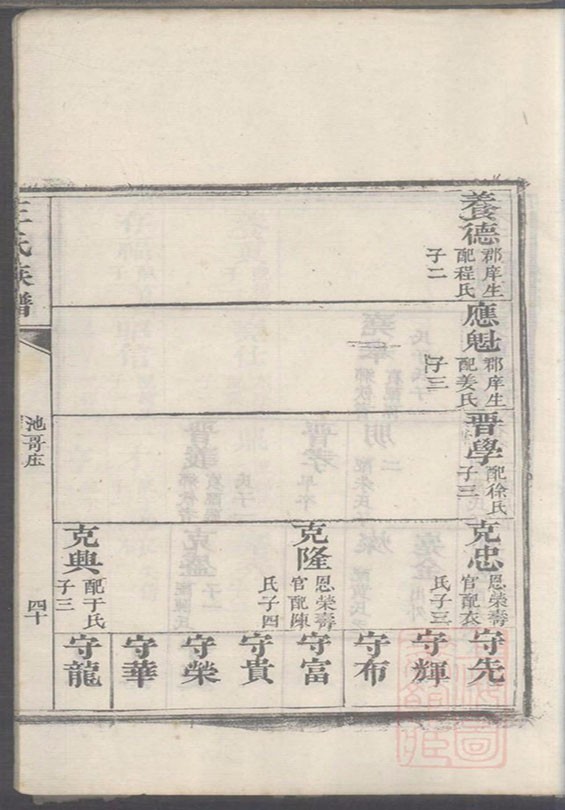 養德
郡庠生
配程氏
子二
應魁
郡庠生
配姜氏
子三
晋學
配徐氏
子三
克忠
恩榮壽
官配衣
氏子三
克隆
恩榮壽
官配陳
氏子四
克興
配于氏
子三
守先
守輝
守布
守富
守貴
守榮
守華
守龍
王氏族譜
池哥庄
四十